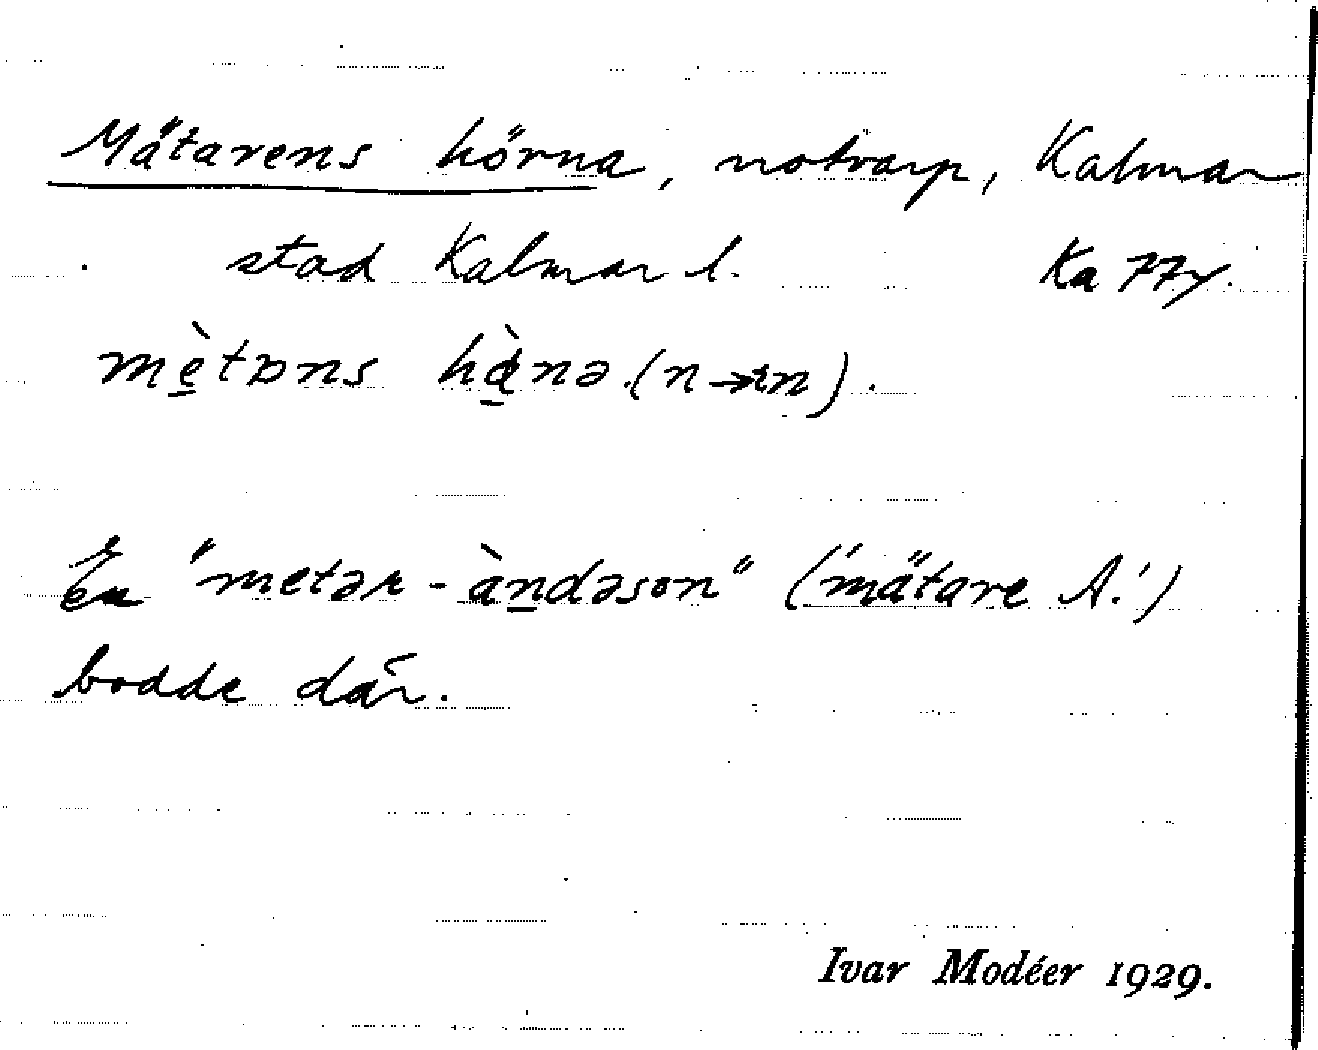 Mätarens hörna, notvarp, Kalmar
stad Kalmar l. Ka 77y.
mètɒns hɑ̀nə (n→rn).
En "metər-àndəson" ('mätare A.')
bodde där.
Ivar Modéer 1929.